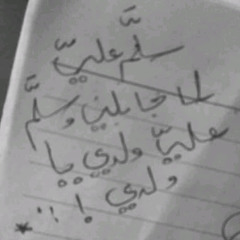 سلَّم عليّ
لما جا بلين وسلَّم
عليّا ولدي يا
ولدي ! !